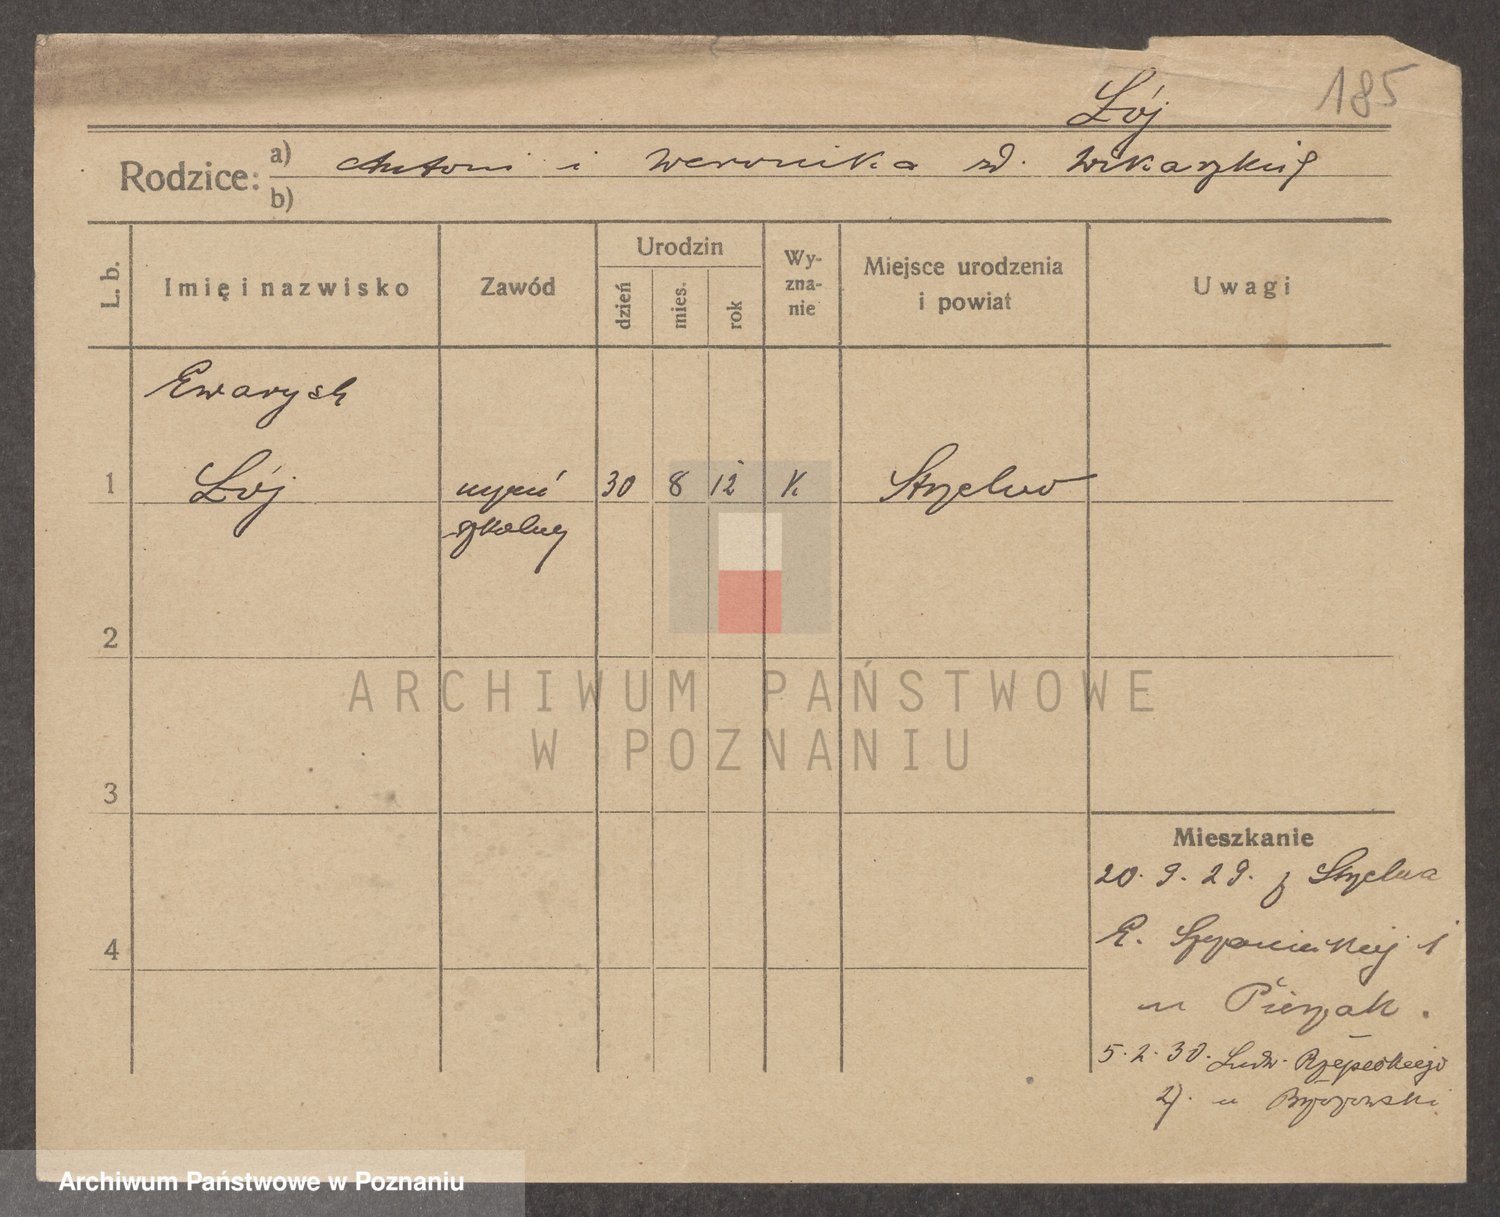 Łój
185
Rodzice:
a) Antoni i Weronika
b)
L. b.
Imię i nazwisko
Zawód
Urodzin
dzień
mies.
rok
Wy-
zna-
nie
Miejsce urodzenia
i powiat
Uwagi
Ewaryst
1 Łój uczeń 30 8 12 K. Strzelno
szkolny
2
3
4
Mieszkanie
20. 9. 29. z Strzelna
E. Szczanieckiej 1
u Pierzak.
5. 2. 30. Ludw. Rzepeckiego
u
ARCHIWUM PAŃSTWOWE
W POZNANIU
Archiwum Państwowe w Poznaniu